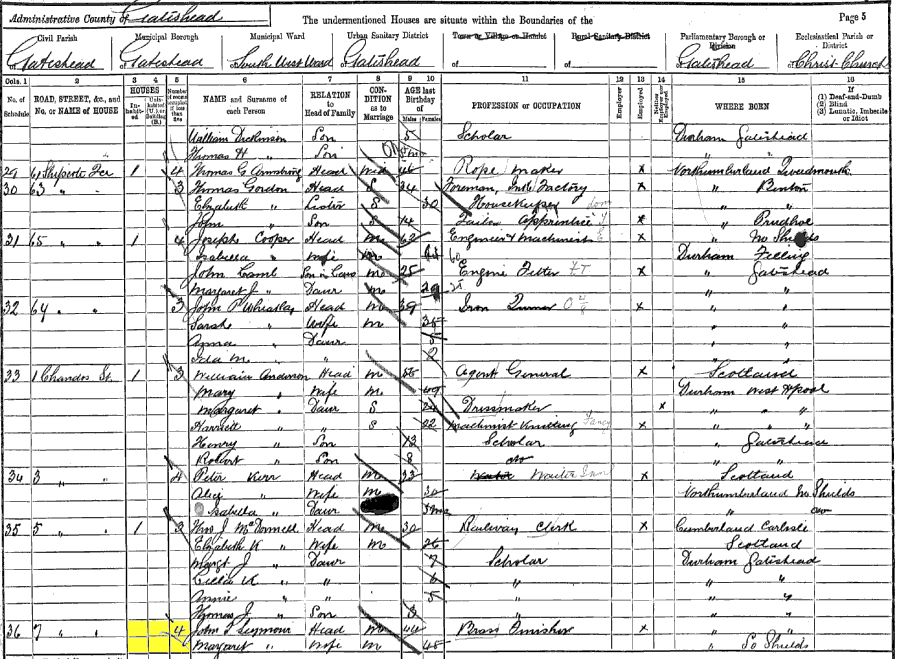 Administrative County of Gateshead The undermentioned Houses are situate within the Boundaries of the Page 5
Civil Parish Municipal Borough Municipal Ward Urban Sanitary District Town or Village or Hamlet Rural Sanitary District Parliamentary Borough or Division Ecclesiastical Parish or District
of Gateshead of Gateshead of South West Ward of Gateshead of of of Gateshead of Christ Church
Cols. 1 2 3 4 5 6 7 8 9 10 11 12 13 14 15 16
No. of Schedule ROAD, STREET, &c., and No. or NAME of HOUSE HOUSES Inhabited Number of rooms occupied if less than five NAME and Surname of each Person RELATION to Head of Family CONDITION as to Marriage AGE last Birthday of Males Females PROFESSION or OCCUPATION Employer Employed Neither WHERE BORN (1) Deaf-and-Dumb (2) Blind (3) Lunatic, Imbecile or Idiot
William Dickinson Son 5 Scholar Durham Gateshead
Thomas H " Son " "
29 61 Ter 1 4 Thomas G Armstrong Head 46 Rope maker x Northumberland Tweedmouth
30 63 " 3 Thomas Gordon Head S 34 Foreman, Factory x " Benton
Elizabeth " Sister S 30 Housekeeper dom "
John " Son S 14 Tailor Apprentice x " Prudhoe
31 65 " " 4 Joseph Cooper Head M 62 Engineer & Machinist x " No Shields
Isabella " Wife M 60 Durham Felling
John Lamb Son in Law M 25 Engine Fitter x " Gateshead
Margaret J " Daur M 29 " "
32 64 " " 3 John P Wheatley Head M 39 Iron Turner x " "
Sarah " Wife M 35 " "
Anna " Daur 5 " "
Ida M " " 2 " "
33 1 Chandos St. 1 3 William Anderson Head M 56 Agent General x Scotland
Mary " Wife M 49 Durham West Hpool
Margaret " Daur S 24 Dressmaker x " " "
Harriett " " S 22 Machinist Knitting Fancy x " " "
Henry " Son 13 Scholar " Gateshead
Robert " Son 8 do " "
34 3 " " 4 Peter Kerr Head M 33 Waiter Inn x Scotland
Alice " Wife M 30 Northumberland No Shields
Isabella " Daur 3ms do
35 5 " " 1 3 Thos J McDonnell Head M 30 Railway Clerk x Cumberland Carlisle
Elizabeth K " Wife M 26 Scotland
Margt J " Daur 7 Scholar Durham Gateshead
K " " 6 " " "
Annie " " 5 " " "
Thomas J " Son 3 " "
36 7 " " 4 John T Seymour Head M 44 Brass Finisher x " "
Margaret " Wife M 45 " So Shields